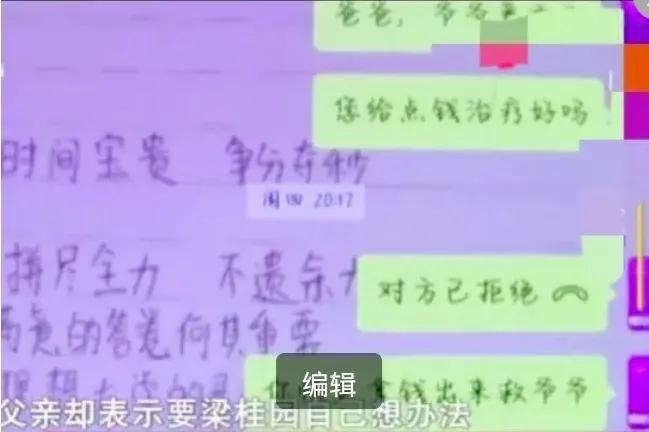 爸爸，爷爷
您给点钱治疗好吗
时间宝贵 争分夺秒
周四 20:17
拼尽全力 不遗余
对方已拒绝
的答卷何其重要
理想大学的
拿钱出来救爷爷
编辑
父亲却表示要梁桂园自己想办法